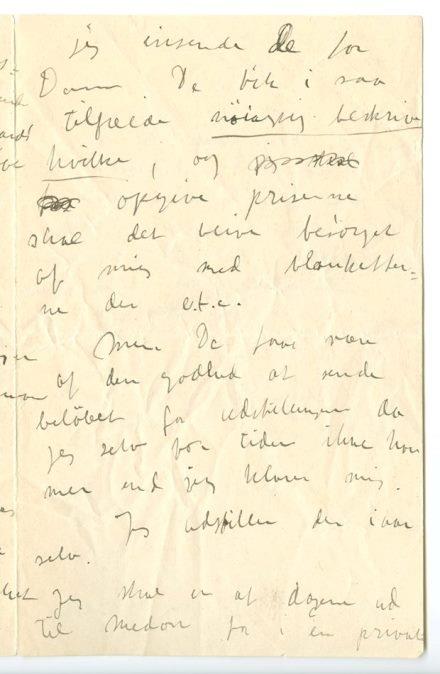 jeg insende De for
Dem. De bør i saa
tilfælde nöiagtig beskrive
hvilke, og
opgive priserne
skal det blive besörget
af mig med blanketter=
ne der e.t.c.
Men De faar være
af den godhed at sende
belöbet for udstilingen da
jeg selv for tiden ikke har
mer end jeg klarer mig.
Jeg udstiller der iaar
selv.
Jeg skal en af dagene ud
til Medon for i en privat